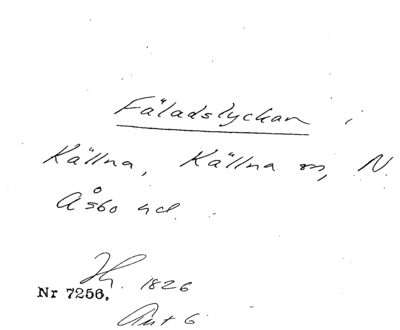 Fäladslyckan i
Källna, Källna sn, N.
Åsbo hd.
Hy. 1826
Nr 7256.
Akt 6